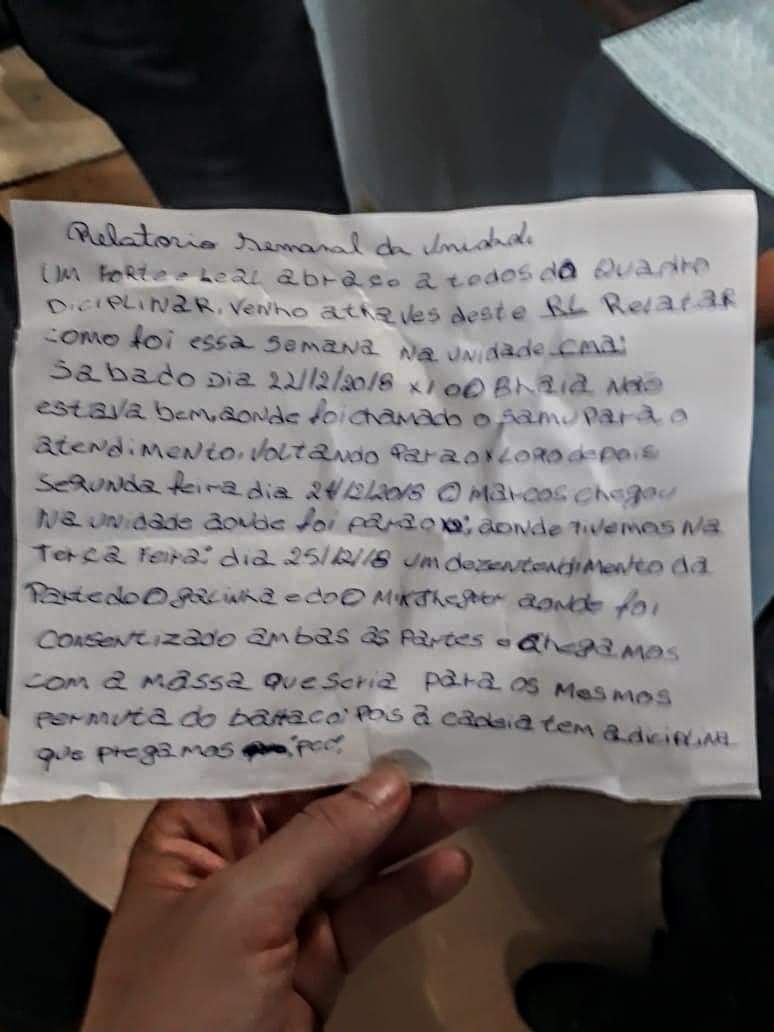 Relatorio Semanal da Unidade
UM FORTE e LEAL abraço a todos do Quadro
DiCiPLiNAR, Venho atraves deste RL RelataR
como foi essa semana Na Unidade CMA:
Sabado Dia 22/12/2018 x1 o Braia Não
estava bem, aonde foi chamado o samu para o
atendimento, Voltando para o x Logo depois
Segunda feira dia 24/12/2018 O Marcos chegou
Na unidade aonde foi para o aonde Tivemos Na
Terça Feira: dia 25/12/18 Um dezentendimento da
Parte do O galinha e do O aonde foi
consentizado ambas as Partes e chegamos
com a massa que seria para os Mesmos
permuta do barraco: Pois a cadeia tem a diciPLiNA
que pregamos :pcc: